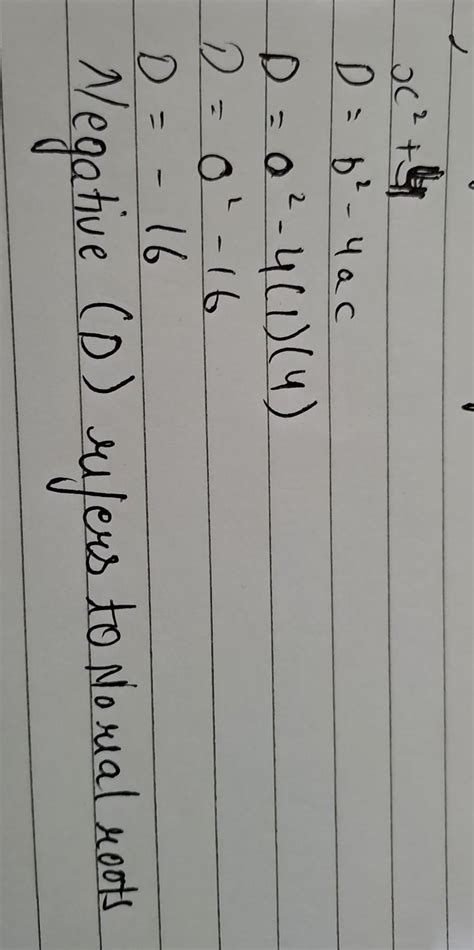 x² + 4
D = b² - 4ac
D = 0² - 4(1)(4)
D = 0² - 16
D = - 16
Negative (D) refers to No real roots